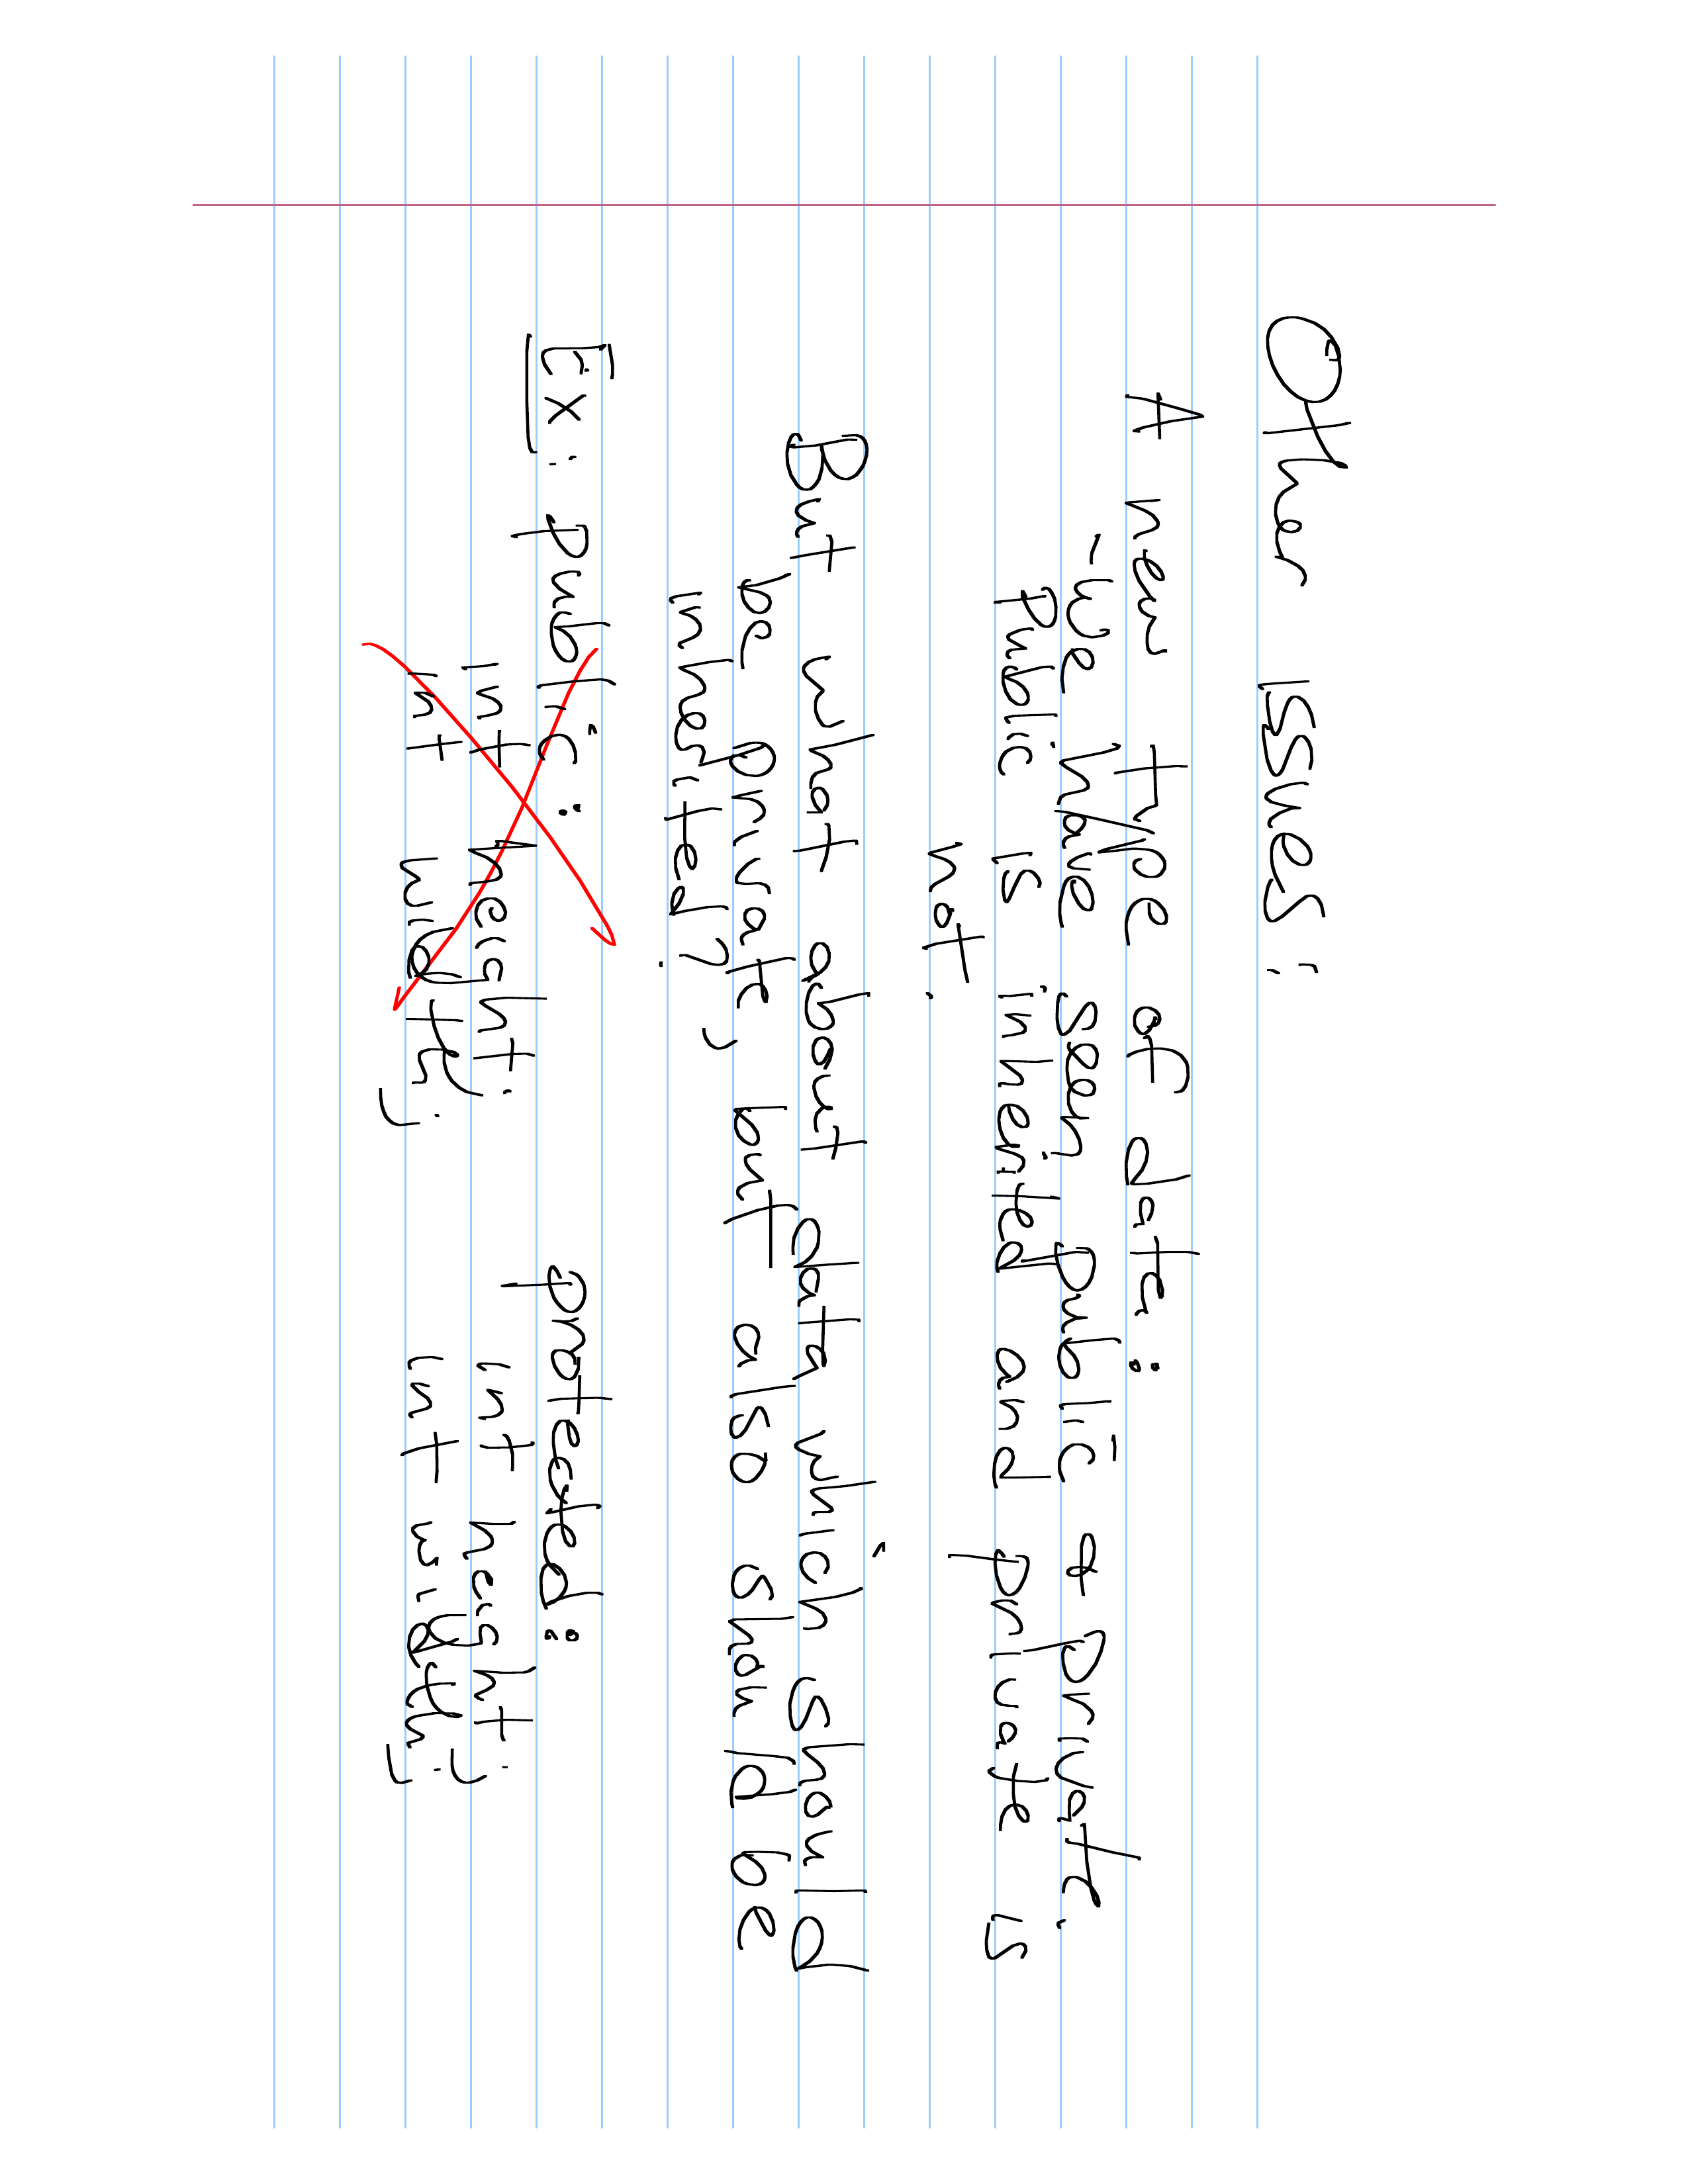 Other issues:
A new type of data:
-We have seen public & private.
Public is inherited and private is
not.
But what about data which should
be private, but also should be
inherited?
Ex: public: protected:
int height; int height;
int width; int width;